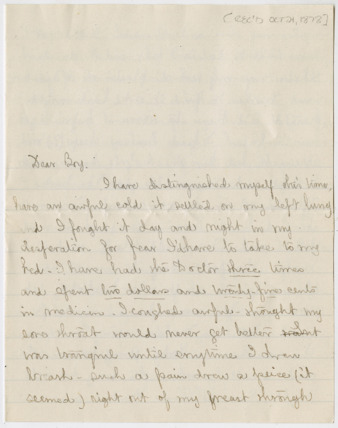 [REC'D OCT 21, 1878]
Dear Boy.
I have distinguished myself this time,
have an awful cold it settled on my left lung
d I fought it day and night in my
desperation for fear I'd have to take to my
bed - I have had the Doctor three times
and spent two dollars and twenty-five cents
in medicine. I coughed awful - thought my
sore throat would never get better
was tranquil until everytime I drew
breath - such a pain drew a peice (it
seemed) right out of my breast through